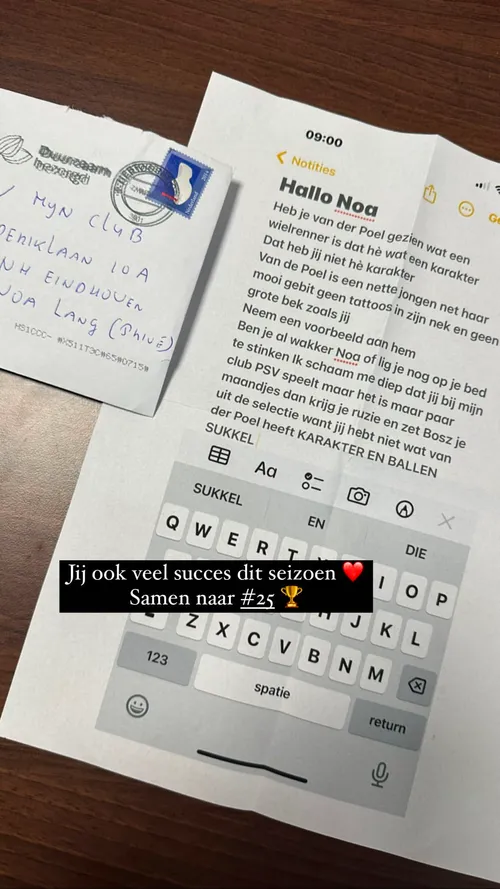 Duurzaam
bezorgd
MYN CLUB
10 A
EINDHOVEN
NOA LANG
09:00
Notities
Hallo Noa
Heb je van der Poel gezien wat een
wielrenner is dat hè wat een karakter
Dat heb jij niet hè karakter
Van de Poel is een nette jongen net haar
mooi gebit geen tattoos in zijn nek en geen
grote bek zoals jij
Neem een voorbeeld aan hem
Ben je al wakker Noa of lig je nog op je bed
te stinken Ik schaam me diep dat jij bij mijn
club PSV speelt maar het is maar paar
maandjes dan krijg je ruzie en zet Bosz je
uit de selectie want jij hebt niet wat van
der Poel heeft KARAKTER EN BALLEN
SUKKEL
Aa
SUKKEL EN DIE
Q W E R T I O P
H J K L
Z X C V B N M
123 spatie return
Jij ook veel succes dit seizoen ❤️
Samen naar #25 🏆